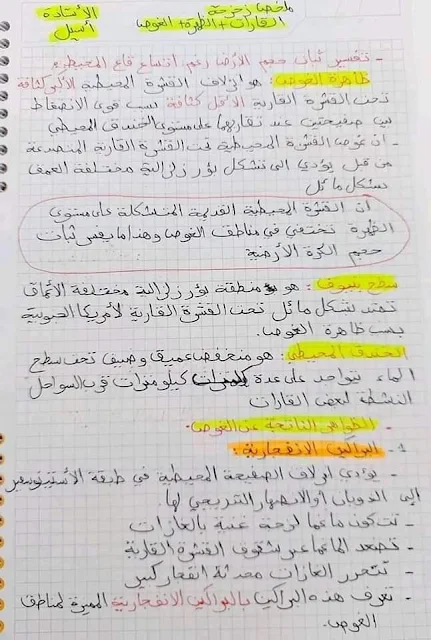 ملخص زحزحة
القارات + الظهرة + الغوص
الأستاذة
أسيل
- تفسير ثبات حجم الأرض رغم اتساع قاع المحيط :
ظاهرة الغوص : هو انزلاق القشرة المحيطية الأكثر كثافة
تحت القشرة القارية الأقل كثافة بسبب قوى الانضغاط
بين صفيحتين عند تقاربهما على مستوى الخندق المحيطي
- ان غوص القشرة المحيطية تحت القشرة القارية المتصدعة
من قبل يؤدي الى تشكل بؤر زلزالية مختلفة العمق
بشكل مائل
أن القشرة المحيطية القديمة المتشكلة على مستوى
الظهرة تختفي في مناطق الغوص وهذا ما يفسر ثبات
حجم الكرة الأرضية
سطح بنيوف : هو منطقة بؤر زلزالية مختلفة الأعماق
تمتد بشكل مائل تحت القشرة القارية لأمريكا الجنوبية
بسبب ظاهرة الغوص.
الخندق المحيطي : هو منخفض عميق وضيق تحت سطح
الماء تتواجد على عدة كيلومترات قرب السواحل
النشطة لبعض القارات
- الظواهر الناتجة عن الغوص .
1 - البراكين الانفجارية :
- يؤدي انزلاق الصفيحة المحيطية في طبقة الأستينوسفير
إلى الذوبان أو الانصهار التدريجي لها.
- تتكون ماغما لزجة غنية بالغازات
- تصعد الماغما عبر شقوق القشرة القارية
- تتحرر الغازات محدثة انفجار كبير
- تعرف هذه البراكين بالبراكين الانفجارية المميزة لمناطق
الغوص.